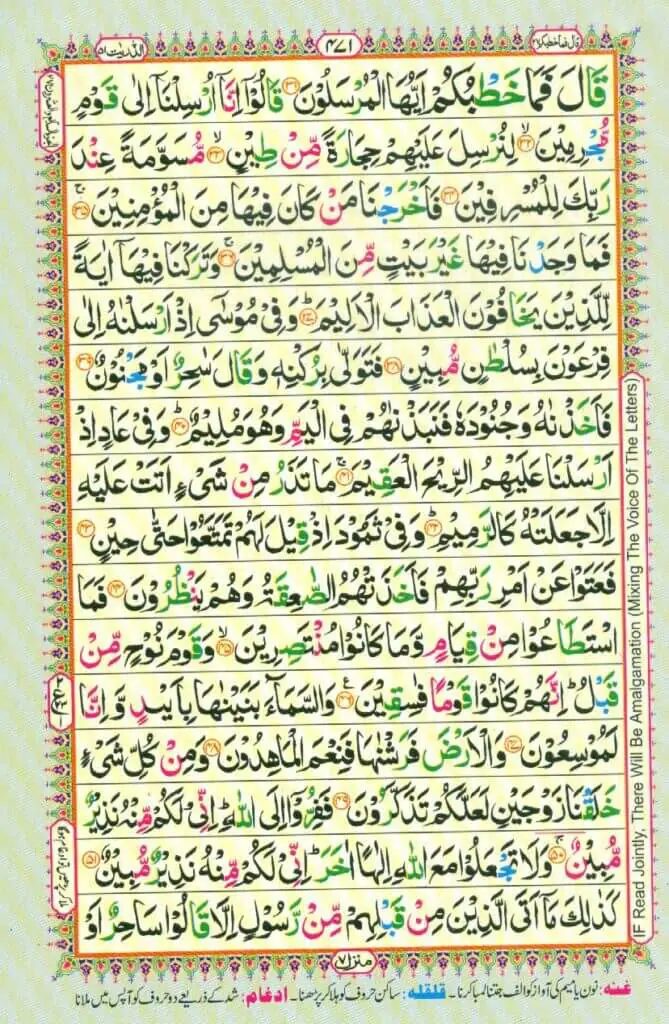 الذّٰریٰت ۵۱
۴۷۱
قال فما خطبکم ۲۷
قَالَ فَمَا خَطْبُكُمْ اَيُّهَا الْمُرْسَلُوْنَ ۳۱ قَالُوْۤا اِنَّاۤ اُرْسِلْنَاۤ اِلٰى قَوْمٍ
مُّجْرِمِيْنَ ۙ۳۲ لِنُرْسِلَ عَلَيْهِمْ حِجَارَةً مِّنْ طِيْنٍ ۙ۳۳ مُّسَوَّمَةً عِنْدَ
رَبِّكَ لِلْمُسْرِفِيْنَ ۳۴ فَاَخْرَجْنَا مَنْ كَانَ فِيْهَا مِنَ الْمُؤْمِنِيْنَ ۚ۳۵
فَمَا وَجَدْنَا فِيْهَا غَيْرَ بَيْتٍ مِّنَ الْمُسْلِمِيْنَ ۚ۳۶ وَتَرَكْنَا فِيْهَاۤ اٰيَةً
لِّلَّذِيْنَ يَخَافُوْنَ الْعَذَابَ الْاَلِيْمَ ؕ۳۷ وَفِيْ مُوْسٰۤى اِذْ اَرْسَلْنٰهُ اِلٰى
فِرْعَوْنَ بِسُلْطٰنٍ مُّبِيْنٍ ۳۸ فَتَوَلّٰى بِرُكْنِهٖ وَقَالَ سٰحِرٌ اَوْ مَجْنُوْنٌ ۳۹
فَاَخَذْنٰهُ وَجُنُوْدَهٗ فَنَبَذْنٰهُمْ فِي الْيَمِّ وَهُوَ مُلِيْمٌ ؕ۴۰ وَفِيْ عَادٍ اِذْ
اَرْسَلْنَا عَلَيْهِمُ الرِّيْحَ الْعَقِيْمَ ۚ۴۱ مَا تَذَرُ مِنْ شَيْءٍ اَتَتْ عَلَيْهِ
اِلَّا جَعَلَتْهُ كَالرَّمِيْمِ ؕ۴۲ وَفِيْ ثَمُوْدَ اِذْ قِيْلَ لَهُمْ تَمَتَّعُوْا حَتّٰى حِيْنٍ ۴۳
فَعَتَوْا عَنْ اَمْرِ رَبِّهِمْ فَاَخَذَتْهُمُ الصّٰعِقَةُ وَهُمْ يَنْظُرُوْنَ ۴۴ فَمَا
اسْتَطَاعُوْا مِنْ قِيَامٍ وَّمَا كَانُوْا مُنْتَصِرِيْنَ ۙ۴۵ وَقَوْمَ نُوْحٍ مِّنْ
قَبْلُ ؕ اِنَّهُمْ كَانُوْا قَوْمًا فٰسِقِيْنَ ۴۶ وَالسَّمَآءَ بَنَيْنٰهَا بِاَيْىدٍ وَّاِنَّا
لَمُوْسِعُوْنَ ۴۷ وَالْاَرْضَ فَرَشْنٰهَا فَنِعْمَ الْمٰهِدُوْنَ ۴۸ وَمِنْ كُلِّ شَيْءٍ
خَلَقْنَا زَوْجَيْنِ لَعَلَّكُمْ تَذَكَّرُوْنَ ۴۹ فَفِرُّوْۤا اِلَى اللّٰهِ ؕ اِنِّيْ لَكُمْ مِّنْهُ نَذِيْرٌ
مُّبِيْنٌ ۚ۵۰ وَلَا تَجْعَلُوْا مَعَ اللّٰهِ اِلٰهًا اٰخَرَ ؕ اِنِّيْ لَكُمْ مِّنْهُ نَذِيْرٌ مُّبِيْنٌ ۚ۵۱
كَذٰلِكَ مَاۤ اَتَى الَّذِيْنَ مِنْ قَبْلِهِمْ مِّنْ رَّسُوْلٍ اِلَّا قَالُوْا سَاحِرٌ اَوْ
IF Read Jointly, There Will Be Amalgamation (Mixing The Voice Of The Letters)
منزل ۷
غنه: نون یا میم کی آواز کو الف جتنا لمبا کرنا۔ قلقله: ساکن حروف کو ہلا کر پڑھنا۔ ادغام: شد کے ذریعے دو حروف کو آپس میں ملانا